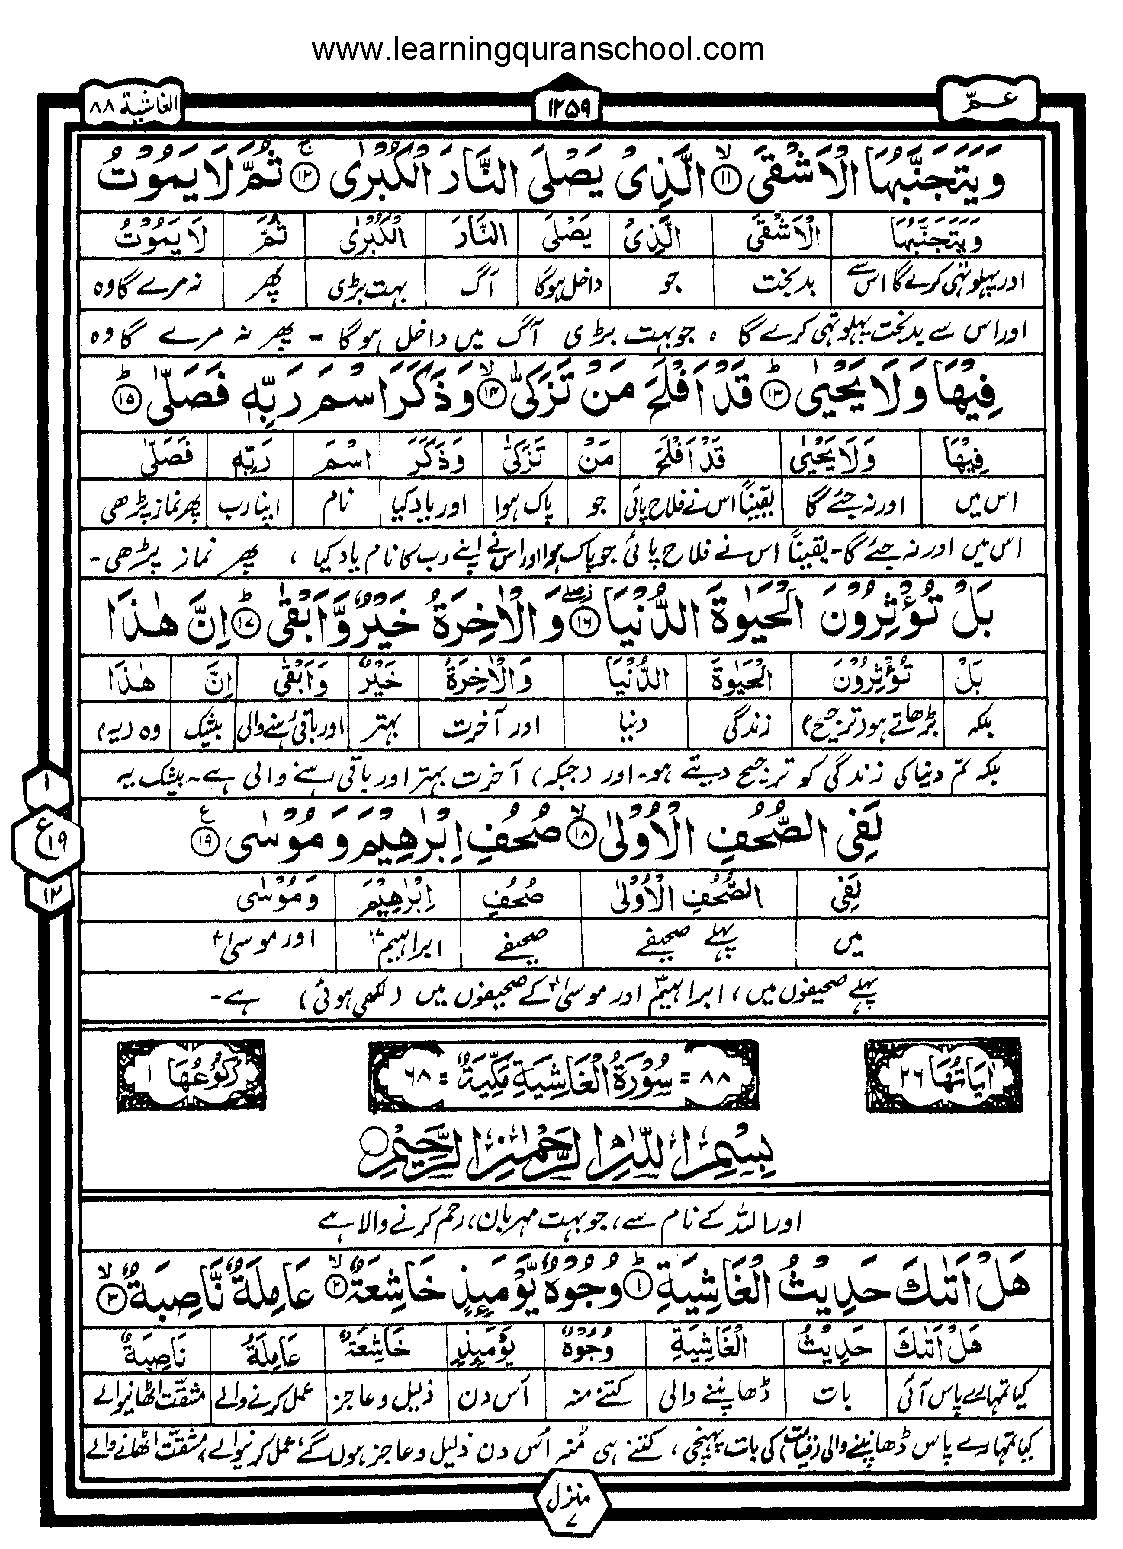 www.learningquranschool.com
عـمّ
١٢٥٩
الغاشية ٨٨
وَيَتَجَنَّبُهَا الْاَشْقَى ۙ‏﴿۱۱﴾ الَّذِىْ يَصْلَى النَّارَ الْكُبْرٰى ۚ‏﴿۱۲﴾ ثُمَّ لَا يَمُوْتُ
وَيَتَجَنَّبُهَا الْاَشْقَى الَّذِىْ يَصْلَى النَّارَ الْكُبْرٰى ثُمَّ لَا يَمُوْتُ
اور پہلو تہی کرے گا اس سے بدبخت جو داخل ہوگا آگ بہت بڑی پھر نہ مرے گا وہ
اور اس سے بدبخت پہلو تہی کرے گا ، جو بہت بڑی آگ میں داخل ہوگا - پھر نہ مرے گا وہ
فِيْهَا وَلَا يَحْيٰى ؕ‏﴿۱۳﴾ قَدْ اَفْلَحَ مَنْ تَزَكّٰى ۙ‏﴿۱۴﴾ وَذَكَرَ اسْمَ رَبِّهٖ فَصَلّٰى ؕ‏﴿۱۵﴾
فِيْهَا وَلَا يَحْيٰى قَدْ اَفْلَحَ مَنْ تَزَكّٰى وَذَكَرَ اسْمَ رَبِّهٖ فَصَلّٰى
اس میں اور نہ جئے گا یقیناً اس نے فلاح پائی جو پاک ہوا اور یاد کیا نام اپنا رب پھر نماز پڑھی
اس میں اور نہ جئے گا - یقیناً اس نے فلاح پائی جو پاک ہوا اور اس نے اپنے رب کا نام یاد کیا ، پھر نماز پڑھی -
بَلْ تُؤْثِرُوْنَ الْحَيٰوةَ الدُّنْيَا ۖ‏﴿۱۶﴾ وَالْاٰخِرَةُ خَيْرٌ وَّاَبْقٰى ؕ‏﴿۱۷﴾ اِنَّ هٰذَا
بَلْ تُؤْثِرُوْنَ الْحَيٰوةَ الدُّنْيَا وَالْاٰخِرَةُ خَيْرٌ وَاَبْقٰى اِنَّ هٰذَا
بلکہ بڑھاتے ہو (ترجیح) زندگی دنیا اور آخرت بہتر اور باقی رہنے والی بیشک وہ (یہ)
بلکہ تم دنیا کی زندگی کو ترجیح دیتے ہو - اور (جبکہ) آخرت بہتر اور باقی رہنے والی ہے - بیشک یہ
لَفِى الصُّحُفِ الْاُوْلٰى ۙ‏﴿۱۸﴾ صُحُفِ اِبْرٰهِيْمَ وَمُوْسٰى ﴿۱۹﴾ ع
١
ع ١٩
١٢
لَفِى الصُّحُفِ الْاُوْلٰى صُحُفِ اِبْرٰهِيْمَ وَمُوْسٰى
میں پہلے صحیفے صحیفے ابراہیمؑ اور موسیٰؑ
پہلے صحیفوں میں ، ابراہیمؑ اور موسیٰؑ کے صحیفوں میں (لکھی ہوئی) ہے -
اٰيَاتُهَا ٢٦
٨٨ = سُوْرَةُ الْغَاشِيَةِ مَكِّيَّةٌ = ٦٨
رُكُوْعُهَا ١
بِسْمِ اللّٰهِ الرَّحْمٰنِ الرَّحِيْمِ
اور اللہ کے نام سے ، جو بہت مہربان ، رحم کرنے والا ہے
هَلْ اَتٰىكَ حَدِيْثُ الْغَاشِيَةِ ؕ‏﴿۱﴾ وُجُوْهٌ يَّوْمَئِذٍ خَاشِعَةٌ ۙ‏﴿۲﴾ عَامِلَةٌ نَّاصِبَةٌ ۙ‏﴿۳﴾
هَلْ اَتٰىكَ حَدِيْثُ الْغَاشِيَةِ وُجُوْهٌ يَوْمَئِذٍ خَاشِعَةٌ عَامِلَةٌ نَاصِبَةٌ
کیا تمہارے پاس آئی بات ڈھانپنے والی کتنے منہ اُس دن ذلیل و عاجز عمل کرنے والے مشقت اٹھانیوالے
کیا تمہارے پاس ڈھانپنے والی (قیامت) کی بات پہنچی ، کتنے ہی مُنہ اُس دن ذلیل و عاجز ہوں گے ، عمل کرنیوالے ، مشقت اٹھانے والے
منزل
٧